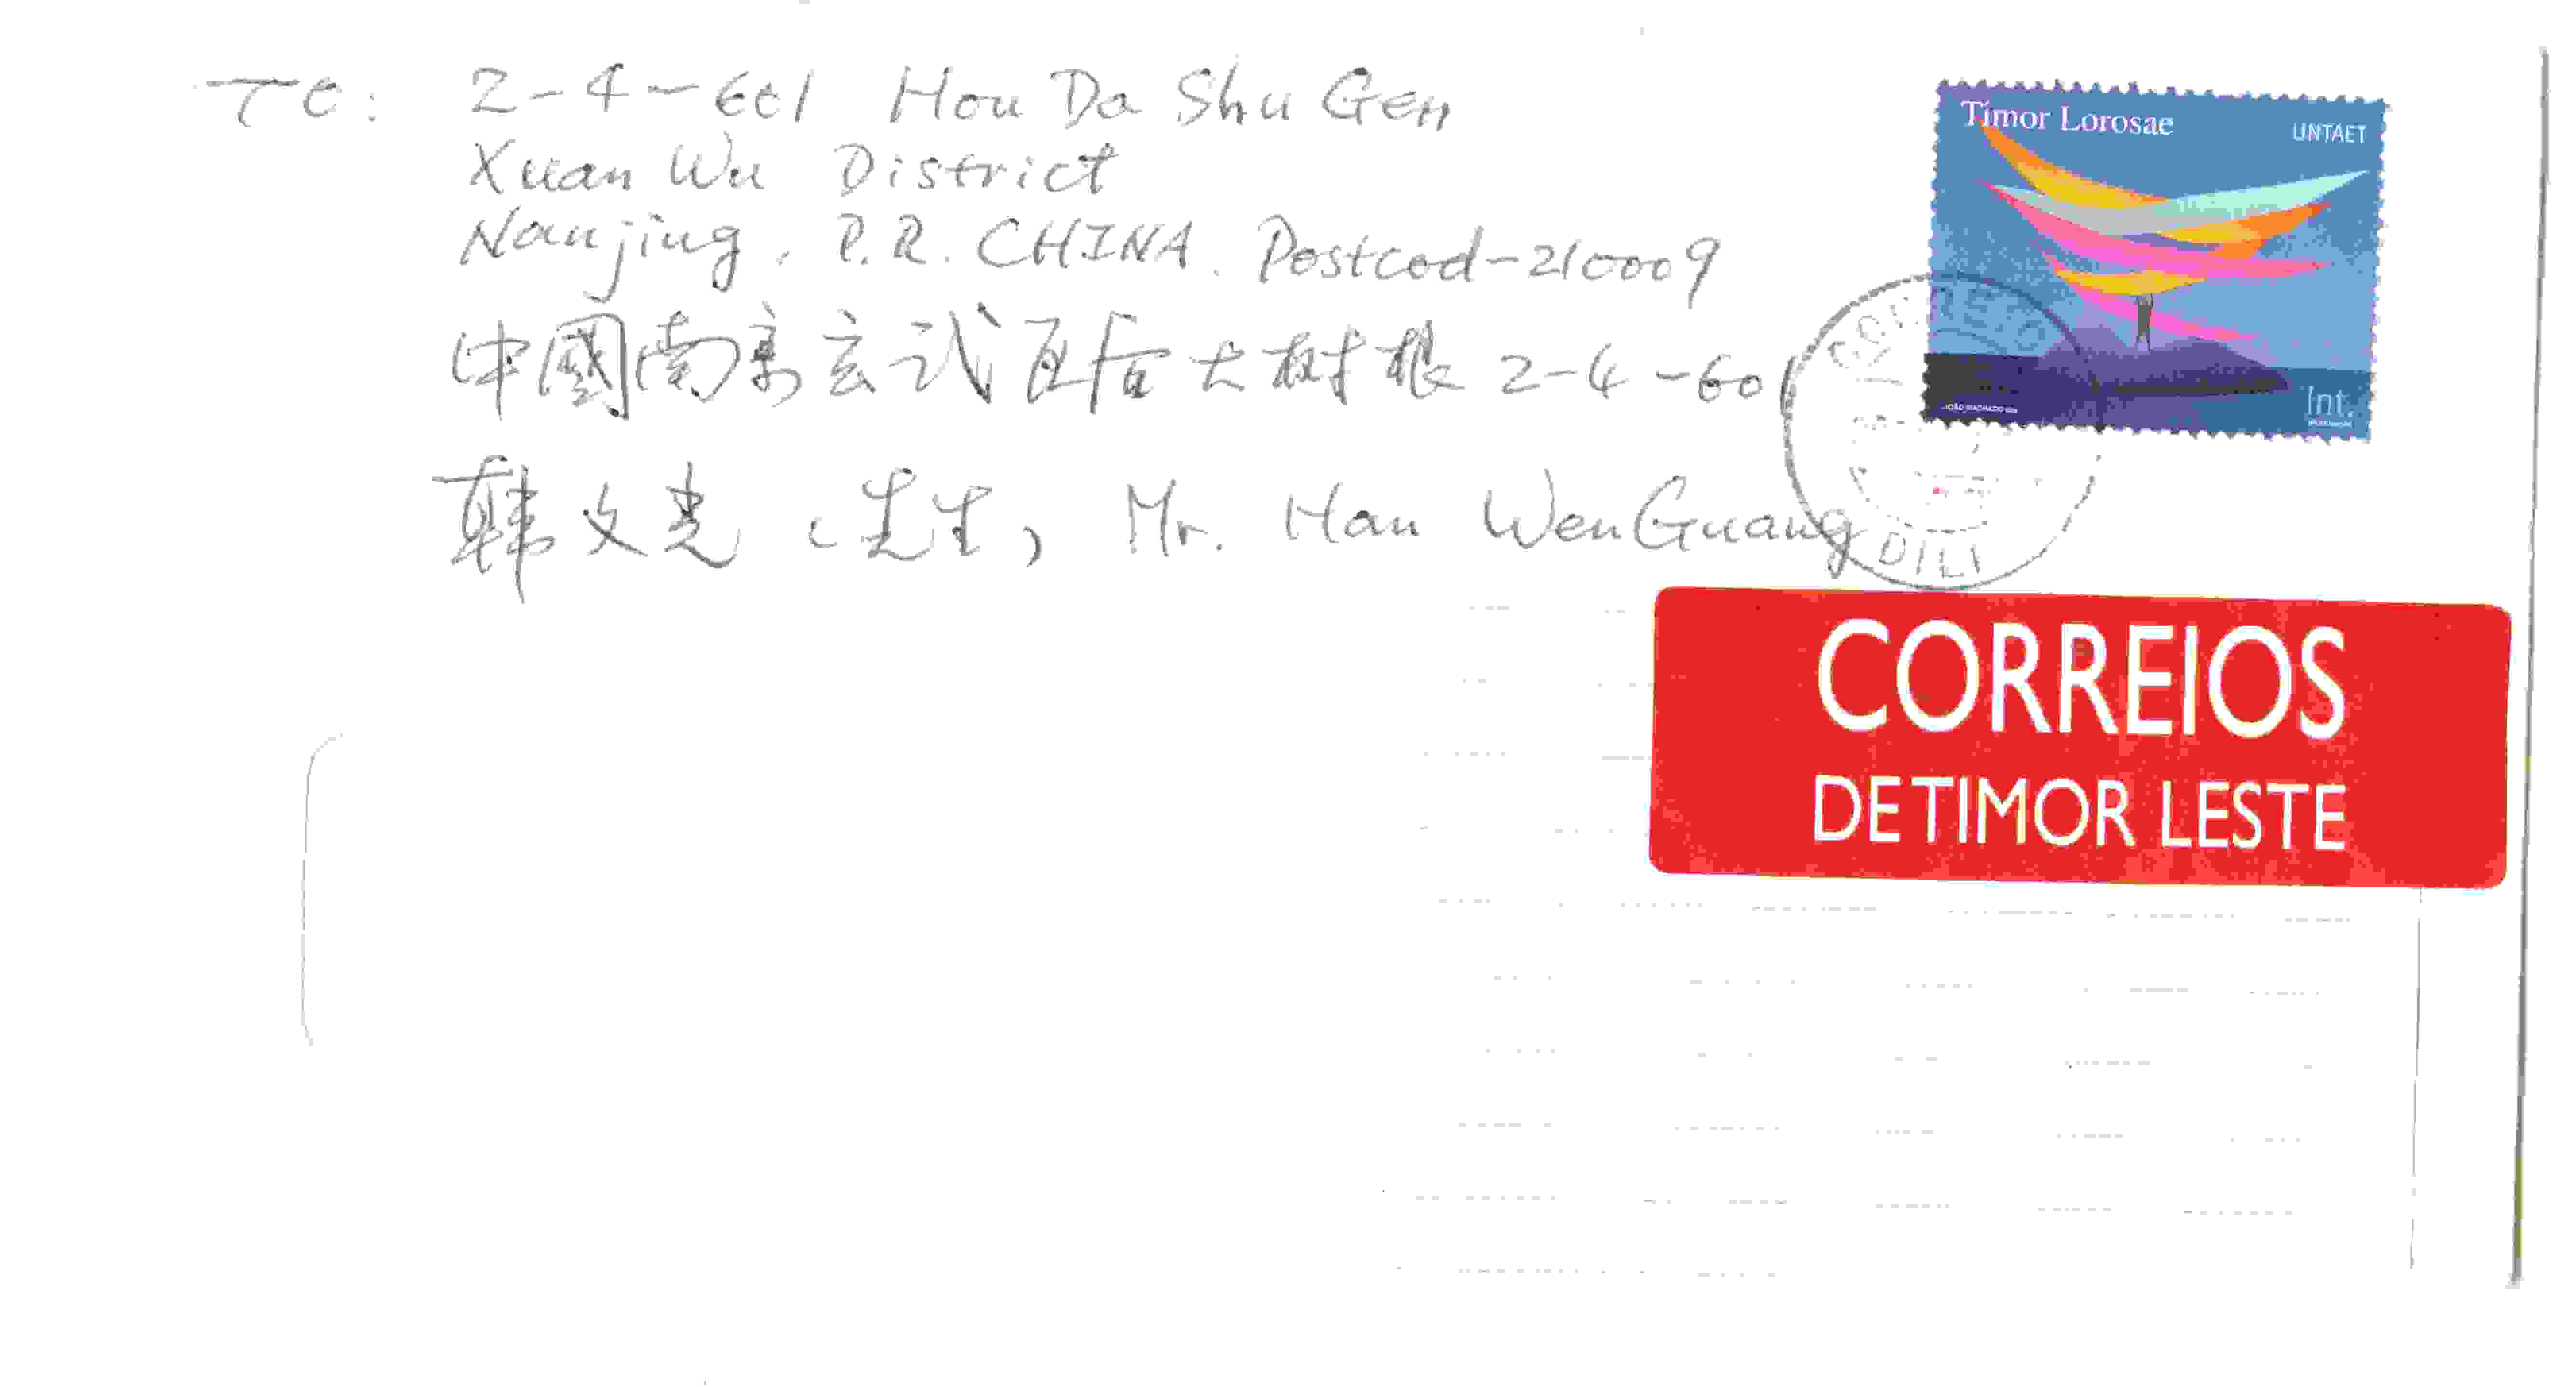 To: 2-4-601 Hou Da Shu Gen
Xuan Wu District
Nanjing. P.R. CHINA. Postcod-210009
中國南京玄武区后大树根 2-4-601
韩文光 先生, Mr. Han WenGuang
Timor Lorosae
UNTAET
Int.
DILI
CORREIOS
DE TIMOR LESTE